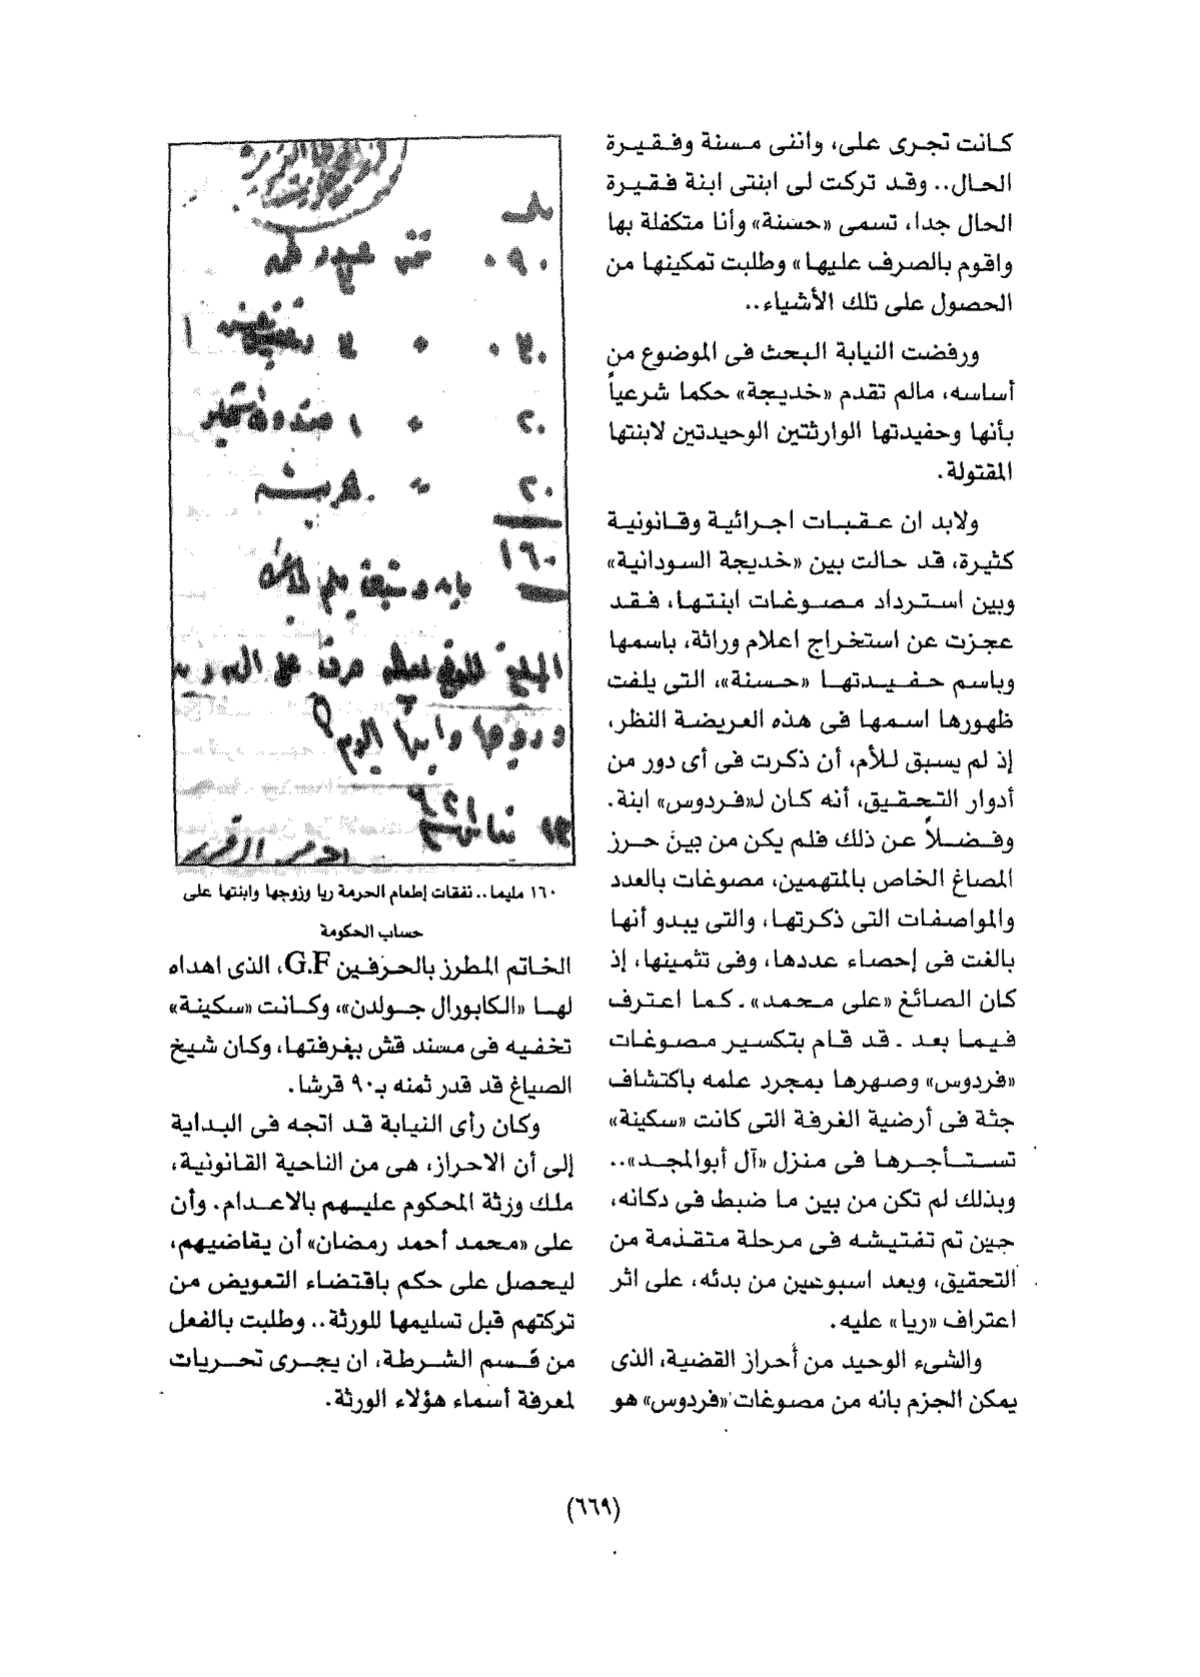 كانت تجرى على، واننى مسنة وفقيرة
الحال.. وقد تركت لى ابنتى ابنة فقيرة
الحال جدا، تسمى «حسنة» وأنا متكفلة بها
واقوم بالصرف عليها» وطلبت تمكينها من
الحصول على تلك الأشياء..
ورفضت النيابة البحث فى الموضوع من
أساسه، مالم تقدم «خديجة» حكما شرعياً
بأنها وحفيدتها الوارثتين الوحيدتين لابنتها
المقتولة.
ولابد ان عقبات اجرائية وقانونية
كثيرة، قد حالت بين «خديجة السودانية»
وبين استرداد مصوغات ابنتها، فقد
عجزت عن استخراج اعلام وراثة، باسمها
وباسم حفيدتها «حسنة»، التى يلفت
ظهورها اسمها فى هذه العريضة النظر،
إذ لم يسبق للأم، أن ذكرت فى أى دور من
أدوار التحقيق، أنه كان لـ«فردوس» ابنة.
وفضلاً عن ذلك فلم يكن من بين حرز
المصاغ الخاص بالمتهمين، مصوغات بالعدد
والمواصفات التى ذكرتها، والتى يبدو أنها
بالغت فى إحصاء عددها، وفى تثمينها، إذ
كان الصائغ «على محمد» ـ كما اعترف
فيما بعد ـ قد قام بتكسير مصوغات
«فردوس» وصهرها بمجرد علمه باكتشاف
جثة فى أرضية الغرفة التى كانت «سكينة»
تستأجرها فى منزل «آل أبوالمجد»..
وبذلك لم تكن من بين ما ضبط فى دكانه،
حين تم تفتيشه فى مرحلة متقدمة من
التحقيق، وبعد اسبوعين من بدئه، على اثر
اعتراف «ريا» عليه.
والشىء الوحيد من أحراز القضية، الذى
يمكن الجزم بانه من مصوغات «فردوس» هو
٠٩٠
٠٣٠
٢٠
٢٠
١٦٠
١٦٠ مليما.. نفقات إطعام الحرمة ريا وزوجها وابنتها على
حساب الحكومة
الخاتم المطرز بالحرفين G.F، الذى اهداه
لها «الكابورال جولدن»، وكانت «سكينة»
تخفيه فى مسند قش بغرفتها، وكان شيخ
الصياغ قد قدر ثمنه بـ٩٠ قرشا.
وكان رأى النيابة قد اتجه فى البداية
إلى أن الاحراز، هى من الناحية القانونية،
ملك ورثة المحكوم عليهم بالاعدام. وأن
على «محمد أحمد رمضان» أن يقاضيهم،
ليحصل على حكم باقتضاء التعويض من
تركتهم قبل تسليمها للورثة.. وطلبت بالفعل
من قسم الشرطة، ان يجرى تحريات
لمعرفة أسماء هؤلاء الورثة.
(٦٦٩)